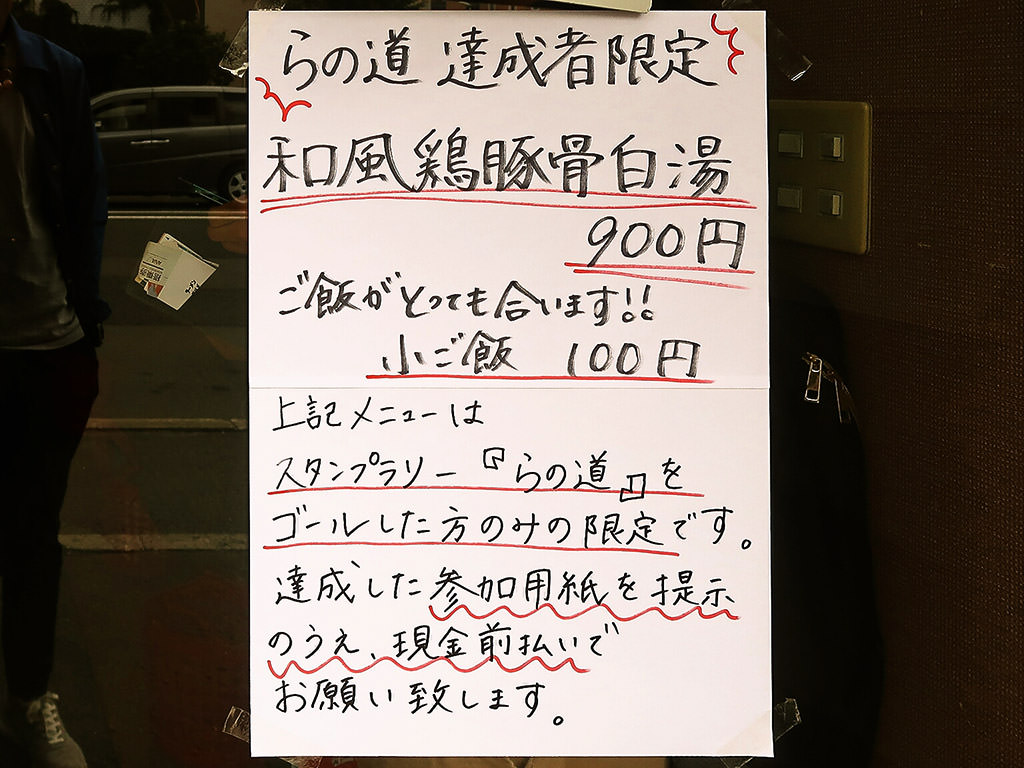 らの道 達成者限定
和風鶏豚骨白湯
900円
ご飯がとっても合います!!
小ご飯 100円
上記メニューは
スタンプラリー『らの道』を
ゴールした方のみの限定です。
達成した参加用紙を提示
のうえ、現金前払いで
お願い致します。